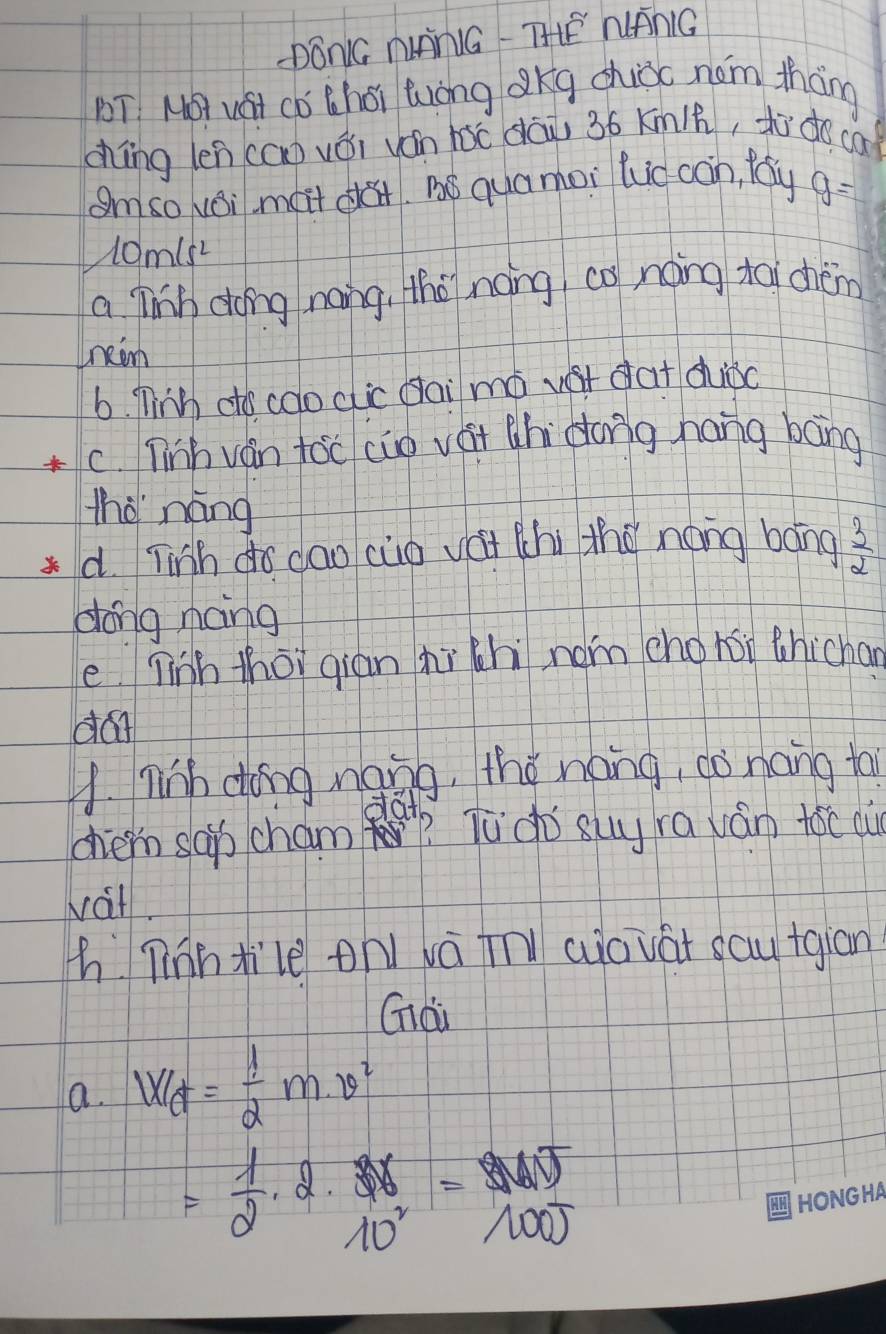 ĐỘNG NĂNG - THẾ NĂNG
BT: Một vật có khối lượng 2kg được ném thẳng
đứng lên cao với vận tốc đầu 36 km/h, từ độ cao
2m so với mặt đất. Bỏ qua mọi lực cản, lấy g =
10m/s²
a. Tính động năng, thế năng, cơ năng tại điểm
ném
b. Tính độ cao cực đại mà vật đạt được
* c. Tính vận tốc của vật khi động năng bằng
thế năng
* d. Tính độ cao của vật khi thế năng bằng 3/2
động năng
e. Tính thời gian từ khi ném cho tới khi chạm
đất
f. Tính động năng, thế năng, cơ năng tại
điểm sắp chạm đất? Từ đó suy ra vận tốc của
vật.
h. Tính tỉ lệ ĐN và TN của vật sau tgian
Giải
a. Wđ = 1/2 m.v²
= 1/2 . 2. 10² = 100J
HH HONG HA